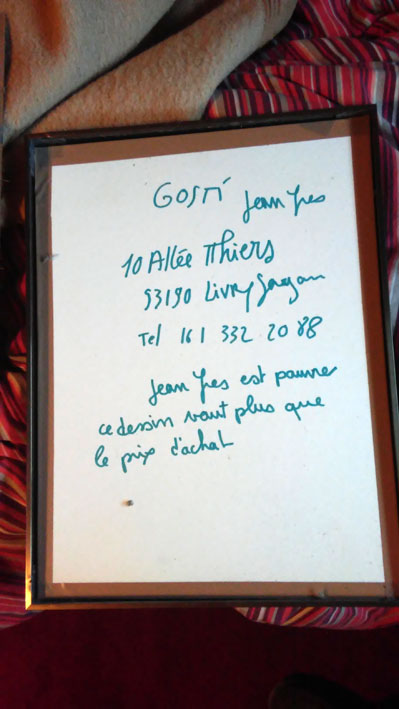 GOSTI Jean Yves
10 Allée Thiers
93190 Livry Gargan
Tel 16 1 332 20 88
Jean Yves est pauvre
ce dessin vaut plus que
le prix d'achat